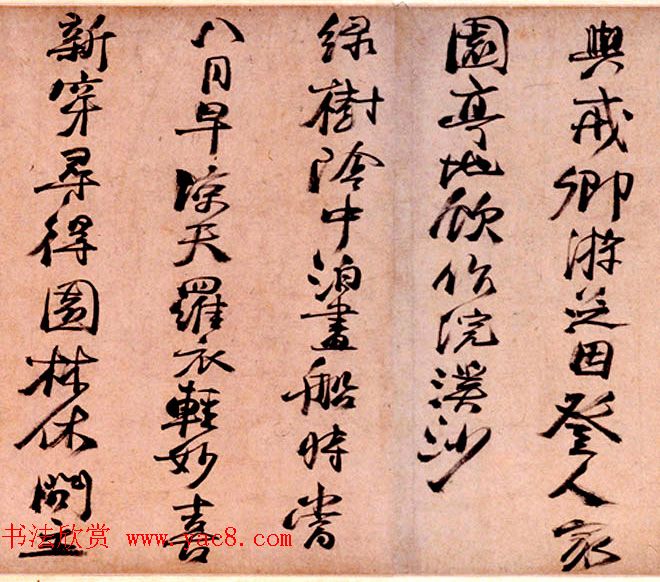 與戒卿游因登人家
園亭地作浣溪沙
綠樹陰中泊畫船時當
八月早涼天羅衣輕妙喜
新穿尋得園林休問主
书法欣赏 www.yac8.com